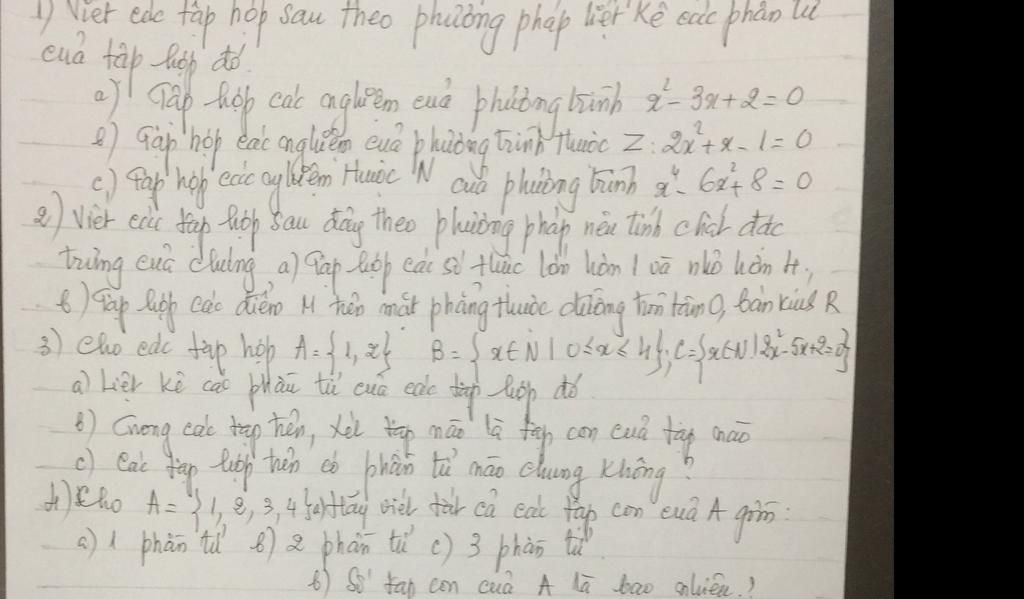 1) Viết các tập hợp sau theo phương pháp liệt kê các phần tử
của tập hợp đó.
a) Tập hợp các nghiệm của phương trình x² - 3x + 2 = 0
b) Tập hợp các nghiệm của phương trình thuộc Z: 2x² + x - 1 = 0
c) Tập hợp các nghiệm thuộc N của phương trình x⁴ - 6x² + 8 = 0
2) Viết các tập hợp sau đây theo phương pháp nêu tính chất đặc
trưng của chúng a) Tập hợp các số thực lớn hơn 1 và nhỏ hơn 4;
b) Tập hợp các điểm M trên mặt phẳng thuộc đường tròn tâm O, bán kính R
3) Cho các tập hợp A = {1, 2} B = {x ∈ N | 0 ≤ x ≤ 4}; C = {x ∈ N | 2x² - 5x + 2 = 0}
a) Liệt kê các phần tử của các tập hợp đó
b) Trong các tập trên, xét tập nào là tập con của tập nào
c) Các tập hợp trên có phần tử nào chung không?
4) Cho A = {1, 2, 3, 4} a) Hãy viết tất cả các tập con của A gồm:
a) 1 phần tử b) 2 phần tử c) 3 phần tử
b) Số tập con của A là bao nhiêu?